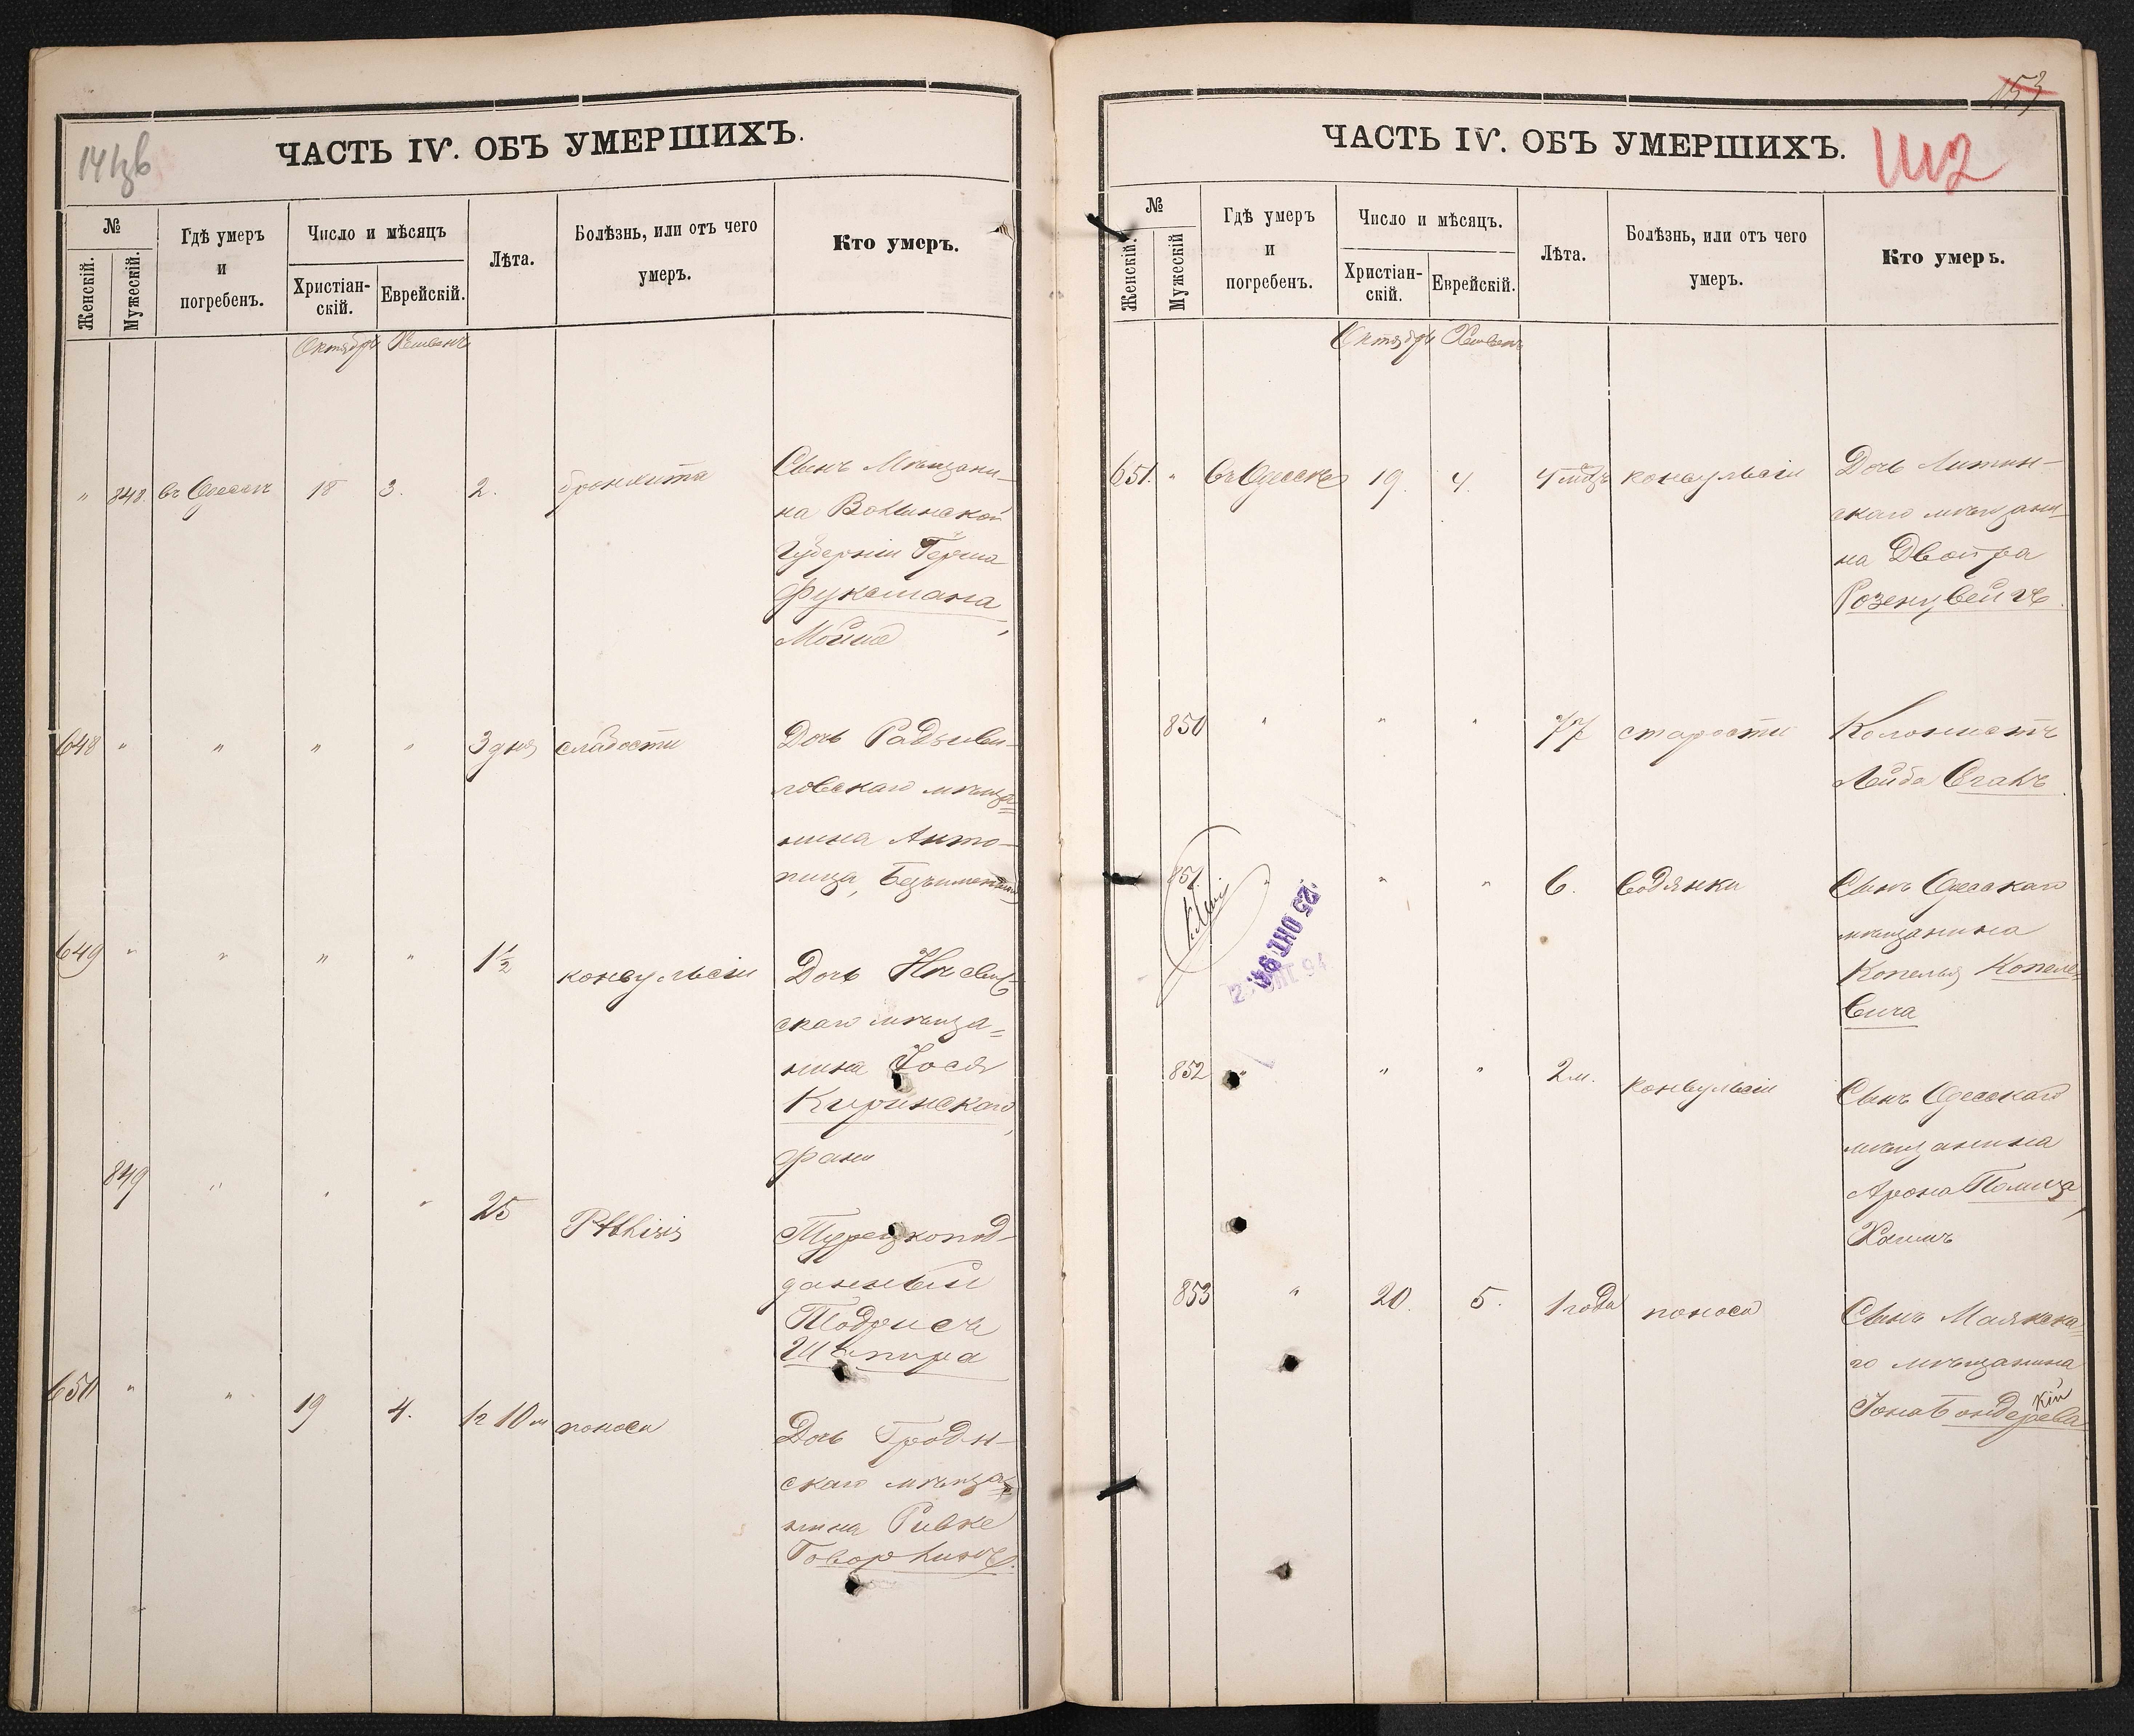 ЧАСТЬ IV. ОБЪ УМЕРШИХЪ.
№
Женскій.
Мужескій.
Гдѣ умеръ
и
погребенъ.
Число и мѣсяцъ
Христіан-
скій.
Еврейскій.
Лѣта.
Болѣзнь, или отъ чего
умеръ.
Кто умеръ.
Октябрь Хешванъ
" 848. въ Одессѣ 18 3. 2. бронхита
Сынъ Мѣщани-
на Волынской
Губерніи Герша
Фуксмана,
Мойше
648 " " " " 3 дня слабости
Дочь Радзиви-
ловскаго мѣща-
нина
649 " " " " 1½ конвульсіи
Дочь
скаго мѣща-
нина Іося
Куринскаго,
Фани
849 " " " 25 Phthisis
Турецкопод-
данный
Тодрисъ
Шапира
650 " " 19 4. 1 г 10 м поноса
Дочь Гродн-
скаго мѣща-
нина Ривке
153
ЧАСТЬ IV. ОБЪ УМЕРШИХЪ.
№
Женскій.
Мужескій
Гдѣ умеръ
и
погребенъ.
Число и мѣсяцъ.
Христіан-
скій.
Еврейскій.
Лѣта.
Болѣзнь, или отъ чего
умеръ.
Кто умеръ.
Октябрь Хешванъ
651. " въ Одессѣ 19. 4. 4 мѣс конвульсіи
Дочь Литин-
скаго мѣщани-
на Двойра
Розенцвейгъ.
850 " " " 77 старости
Колонистъ
Лейба
851. " " " 6. водянки
Сынъ Одесскаго
мѣщанина
Копеля Копеле-
вича
25 ОКТ 94
852 " " " 2 м. конвульсіи
Сынъ Одесскаго
мѣщанина
Арона
Хаимъ
853 " 20. 5. 1 года поноса
Сынъ Маякска-
го мѣщанина
Іона